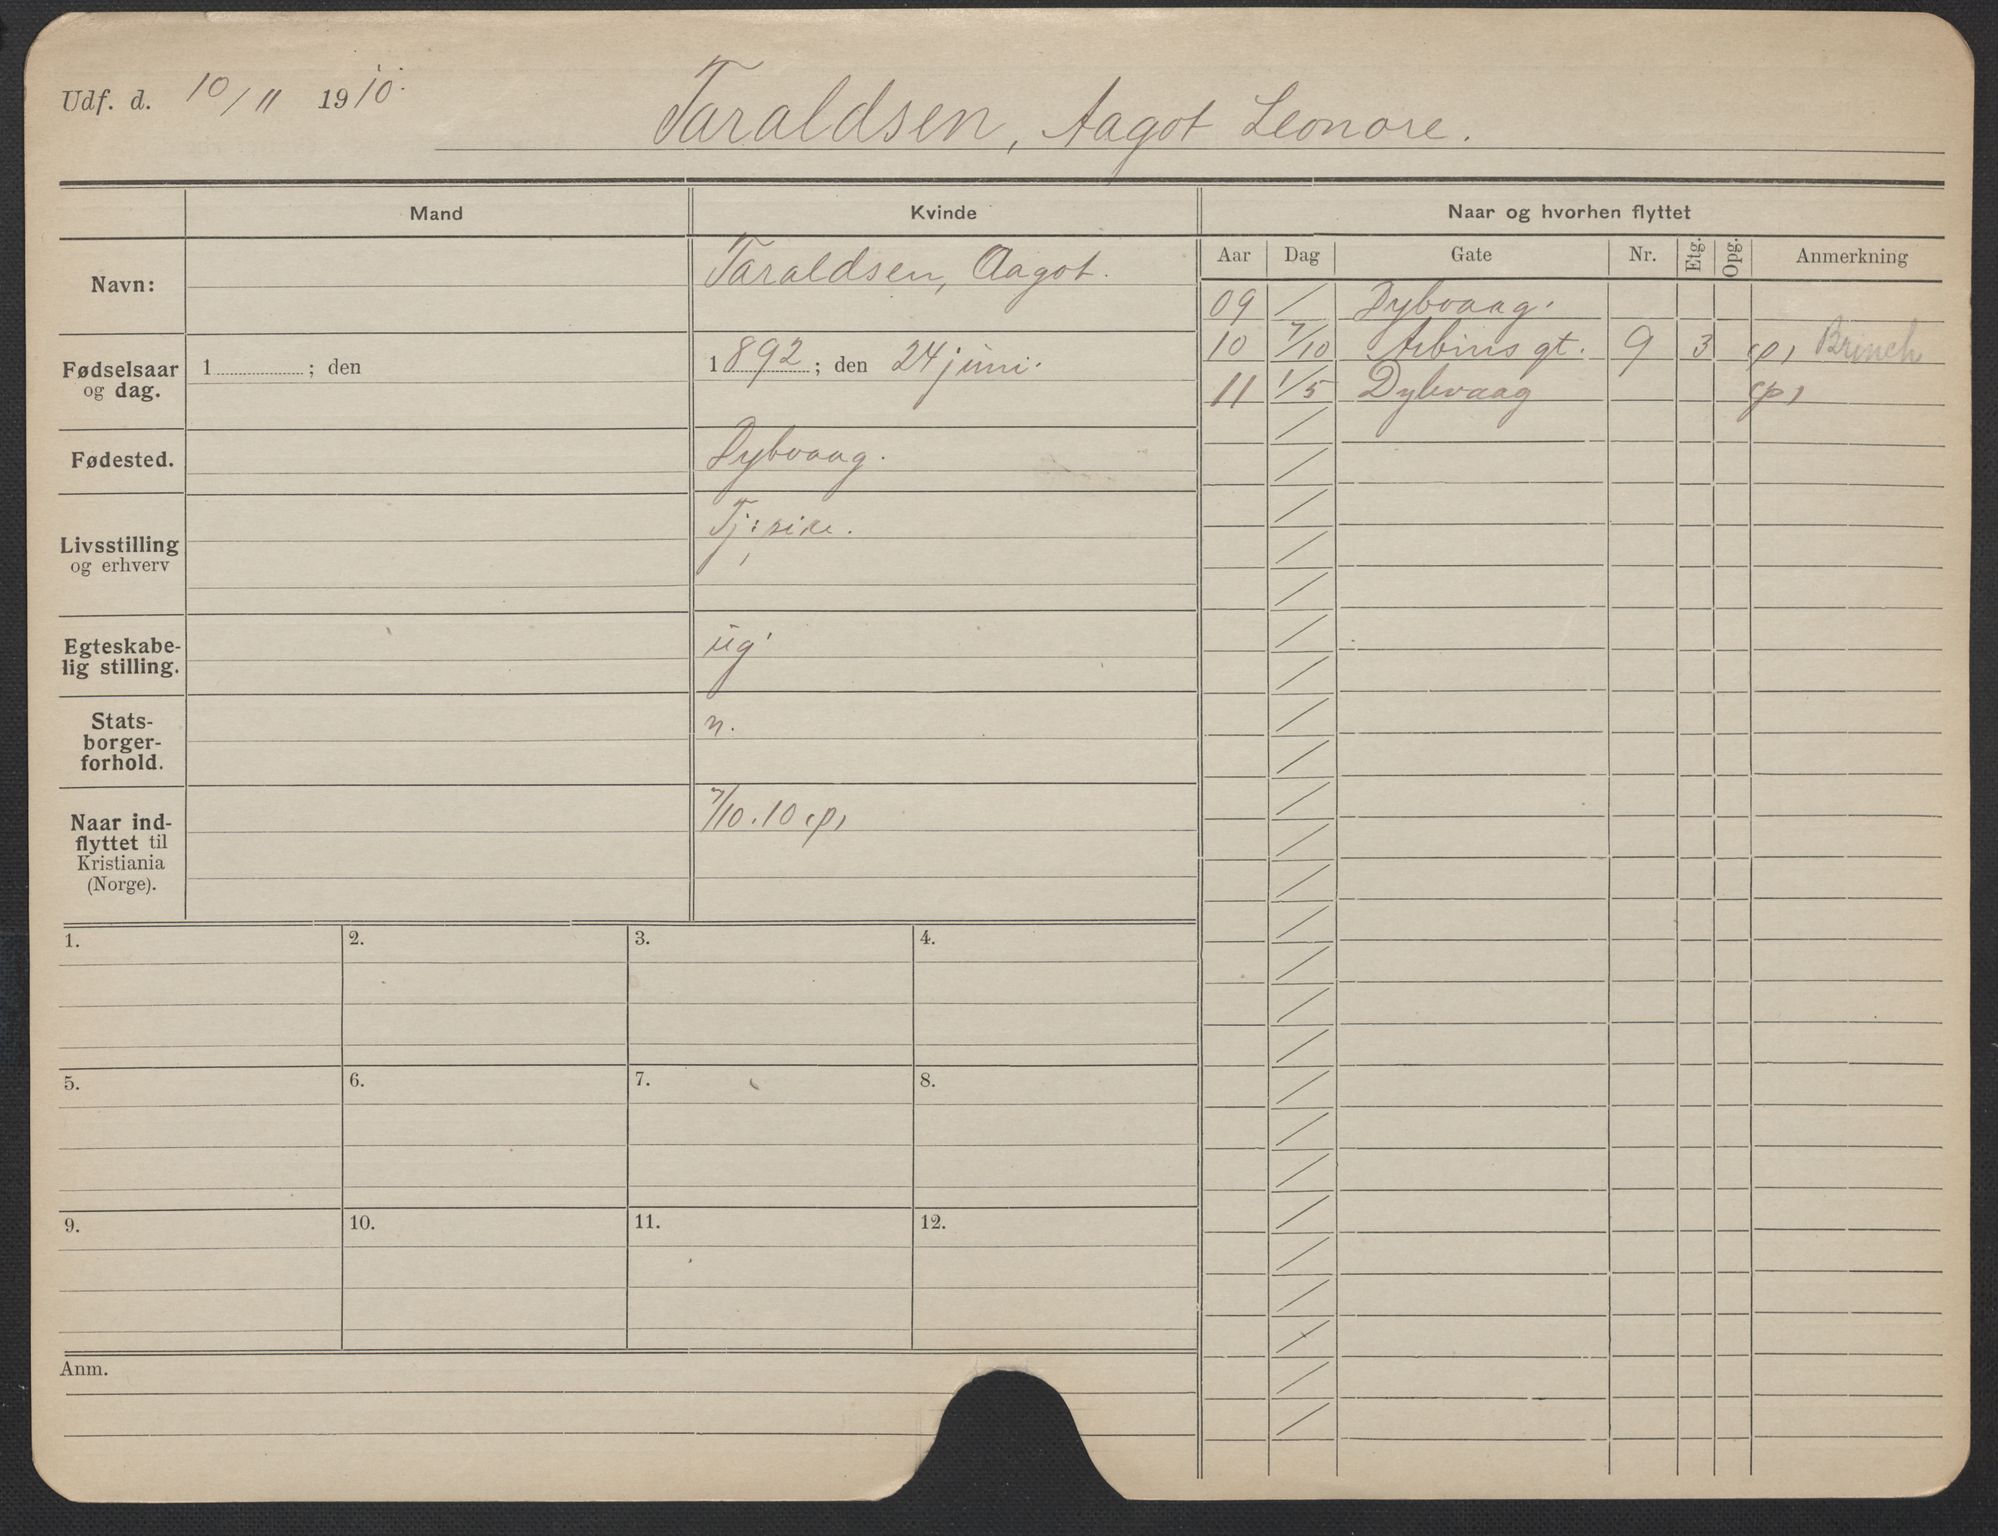 Udf. d. 10/11 1910.
Taraldsen, Aagot Leonore.
Mand
Kvinde
Naar og hvorhen flyttet
Aar Dag Gate Nr. Etg. Opg. Anmerkning
Navn:
Taraldsen, Aagot.
Fødselsaar
og dag.
1 ; den
1892 ; den 24 juni.
Fødested.
Dybvaag.
Livsstilling
og erhverv
Tj: pike.
Egteskabe-
lig stilling.
ug
Stats-
borger-
forhold.
n.
Naar ind-
flyttet til
Kristiania
(Norge).
7/10. 10 (p)
09 / Dybvaag.
10 7/10 Arbins gt. 9 3 (p) Brinch
11 1/5 Dybvaag (p)
1. 2. 3. 4.
5. 6. 7. 8.
9. 10. 11. 12.
Anm.